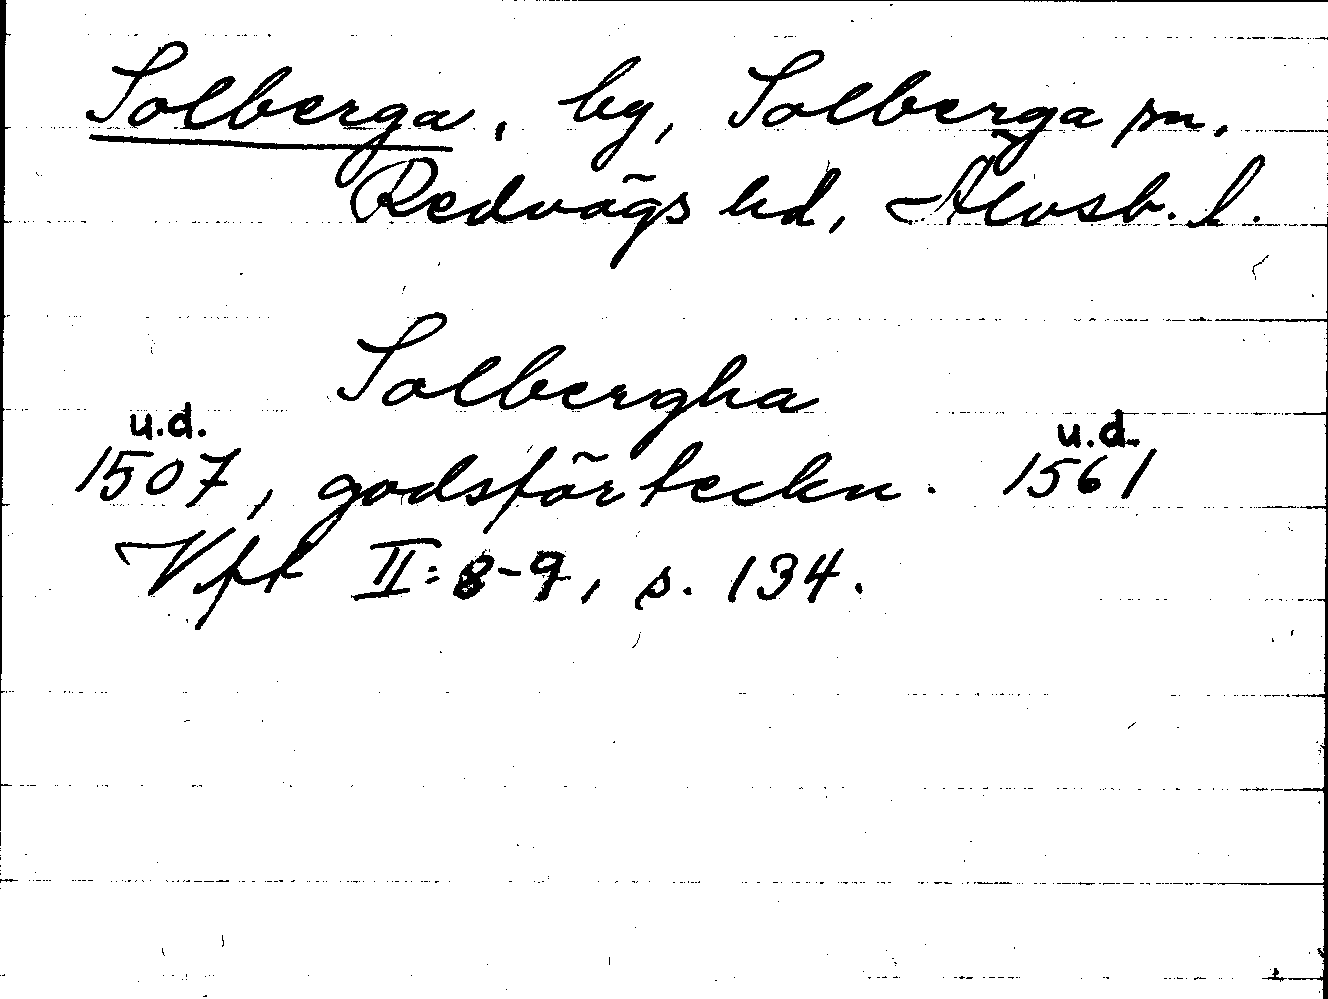 Solberga, by, Solberga sn,
Redvägs hd, Älvsb. l.
Solbergha
u.d. u.d.
1507, godsförteckn. 1561
Vft II:8-9, s. 134.